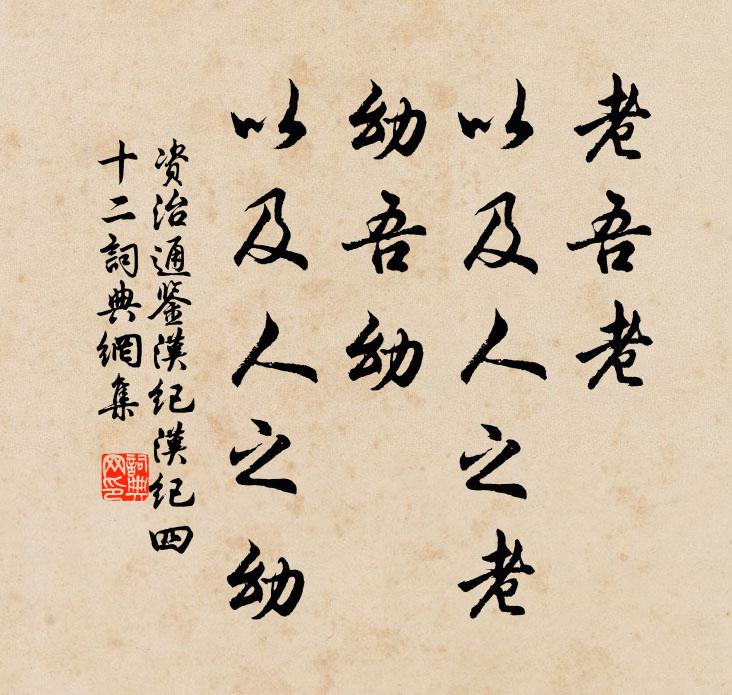 老吾老
以及人之老
幼吾幼
以及人之幼
资治通鉴漢紀漢紀四
十二詞典網集
詞典
网印